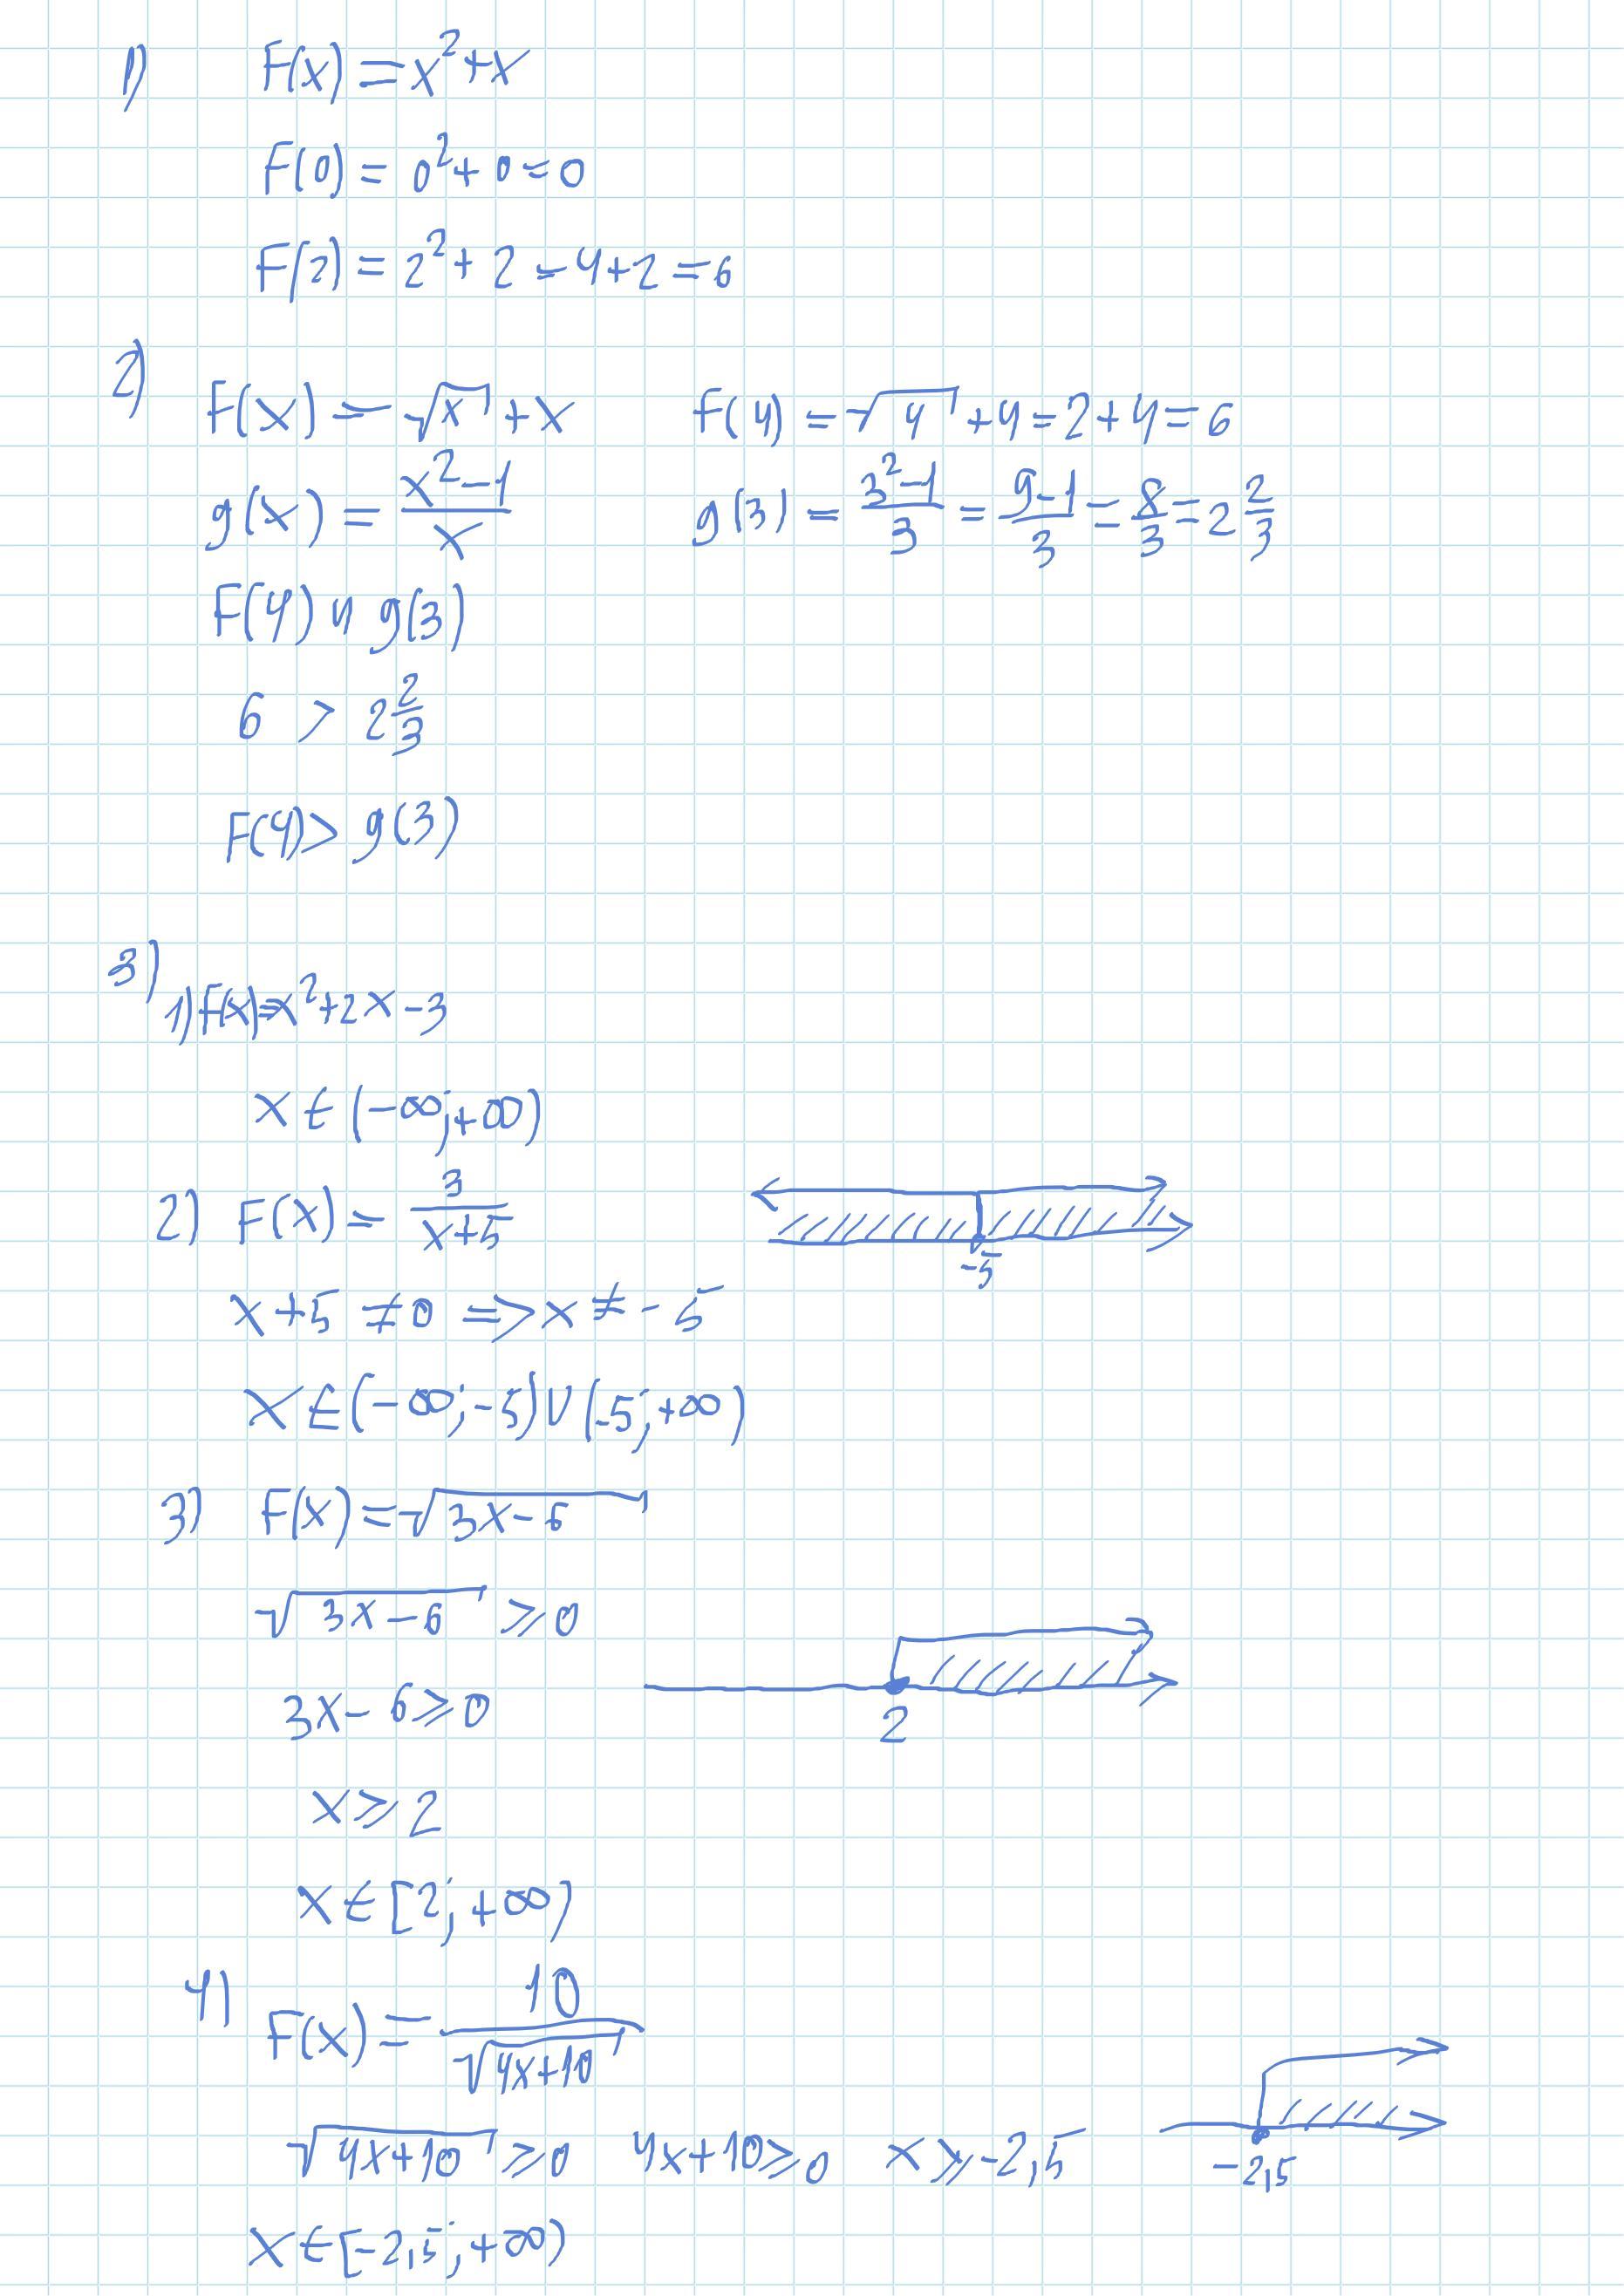 1) F(x) = x²+x
F(0) = 0²+0=0
F(2) = 2²+2=4+2=6
2)
F(x) = √x + x    f(4) = √4 +4=2+4=6
g(x) = (x²-1)/x    g(3) = (3²-1)/3 = (9-1)/3 = 8/3 = 2 2/3
F(4) и g(3)
6 > 2 2/3
F(4) > g(3)
3)
1) F(x)=x²+2x-3
x ∈ (-∞;+∞)
2) F(x) = 3/(x+5)
-5
x+5 ≠0 => x ≠ -5
x ∈ (-∞;-5)∪(-5;+∞)
3) F(x) = √(3x-6)
√(3x-6) ⩾ 0
3x-6⩾0
2
x⩾2
x ∈ [2; +∞)
4) F(x) = 10/√(4x+10)
√(4x+10) ⩾0    4x+10⩾0    x ⩾ -2,5    -2,5
x ∈ [-2,5; +∞)